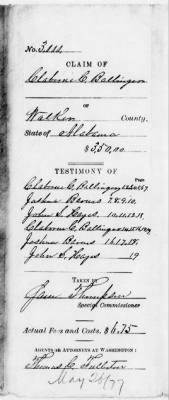 No. 3,
CLAIM OF
Claborne C. Ballinger
OF
Walker County,
State of Alabama
$350,00.
TESTIMONY OF
Page
Claborne C. Ballinger
Joshua 7.8.9.10.
John S. Hayes. 10.11.12.13.
Claborne C. Ballinger
Joshua 16.17.18.
John S. Hayes 19
TAKEN BY
Thompson
Special Commissioner
Actual Fees and Costs, $6.75
AGENTS OR ATTORNEYS AT WASHINGTON:
Thomas C. Fullerton
May 28/77